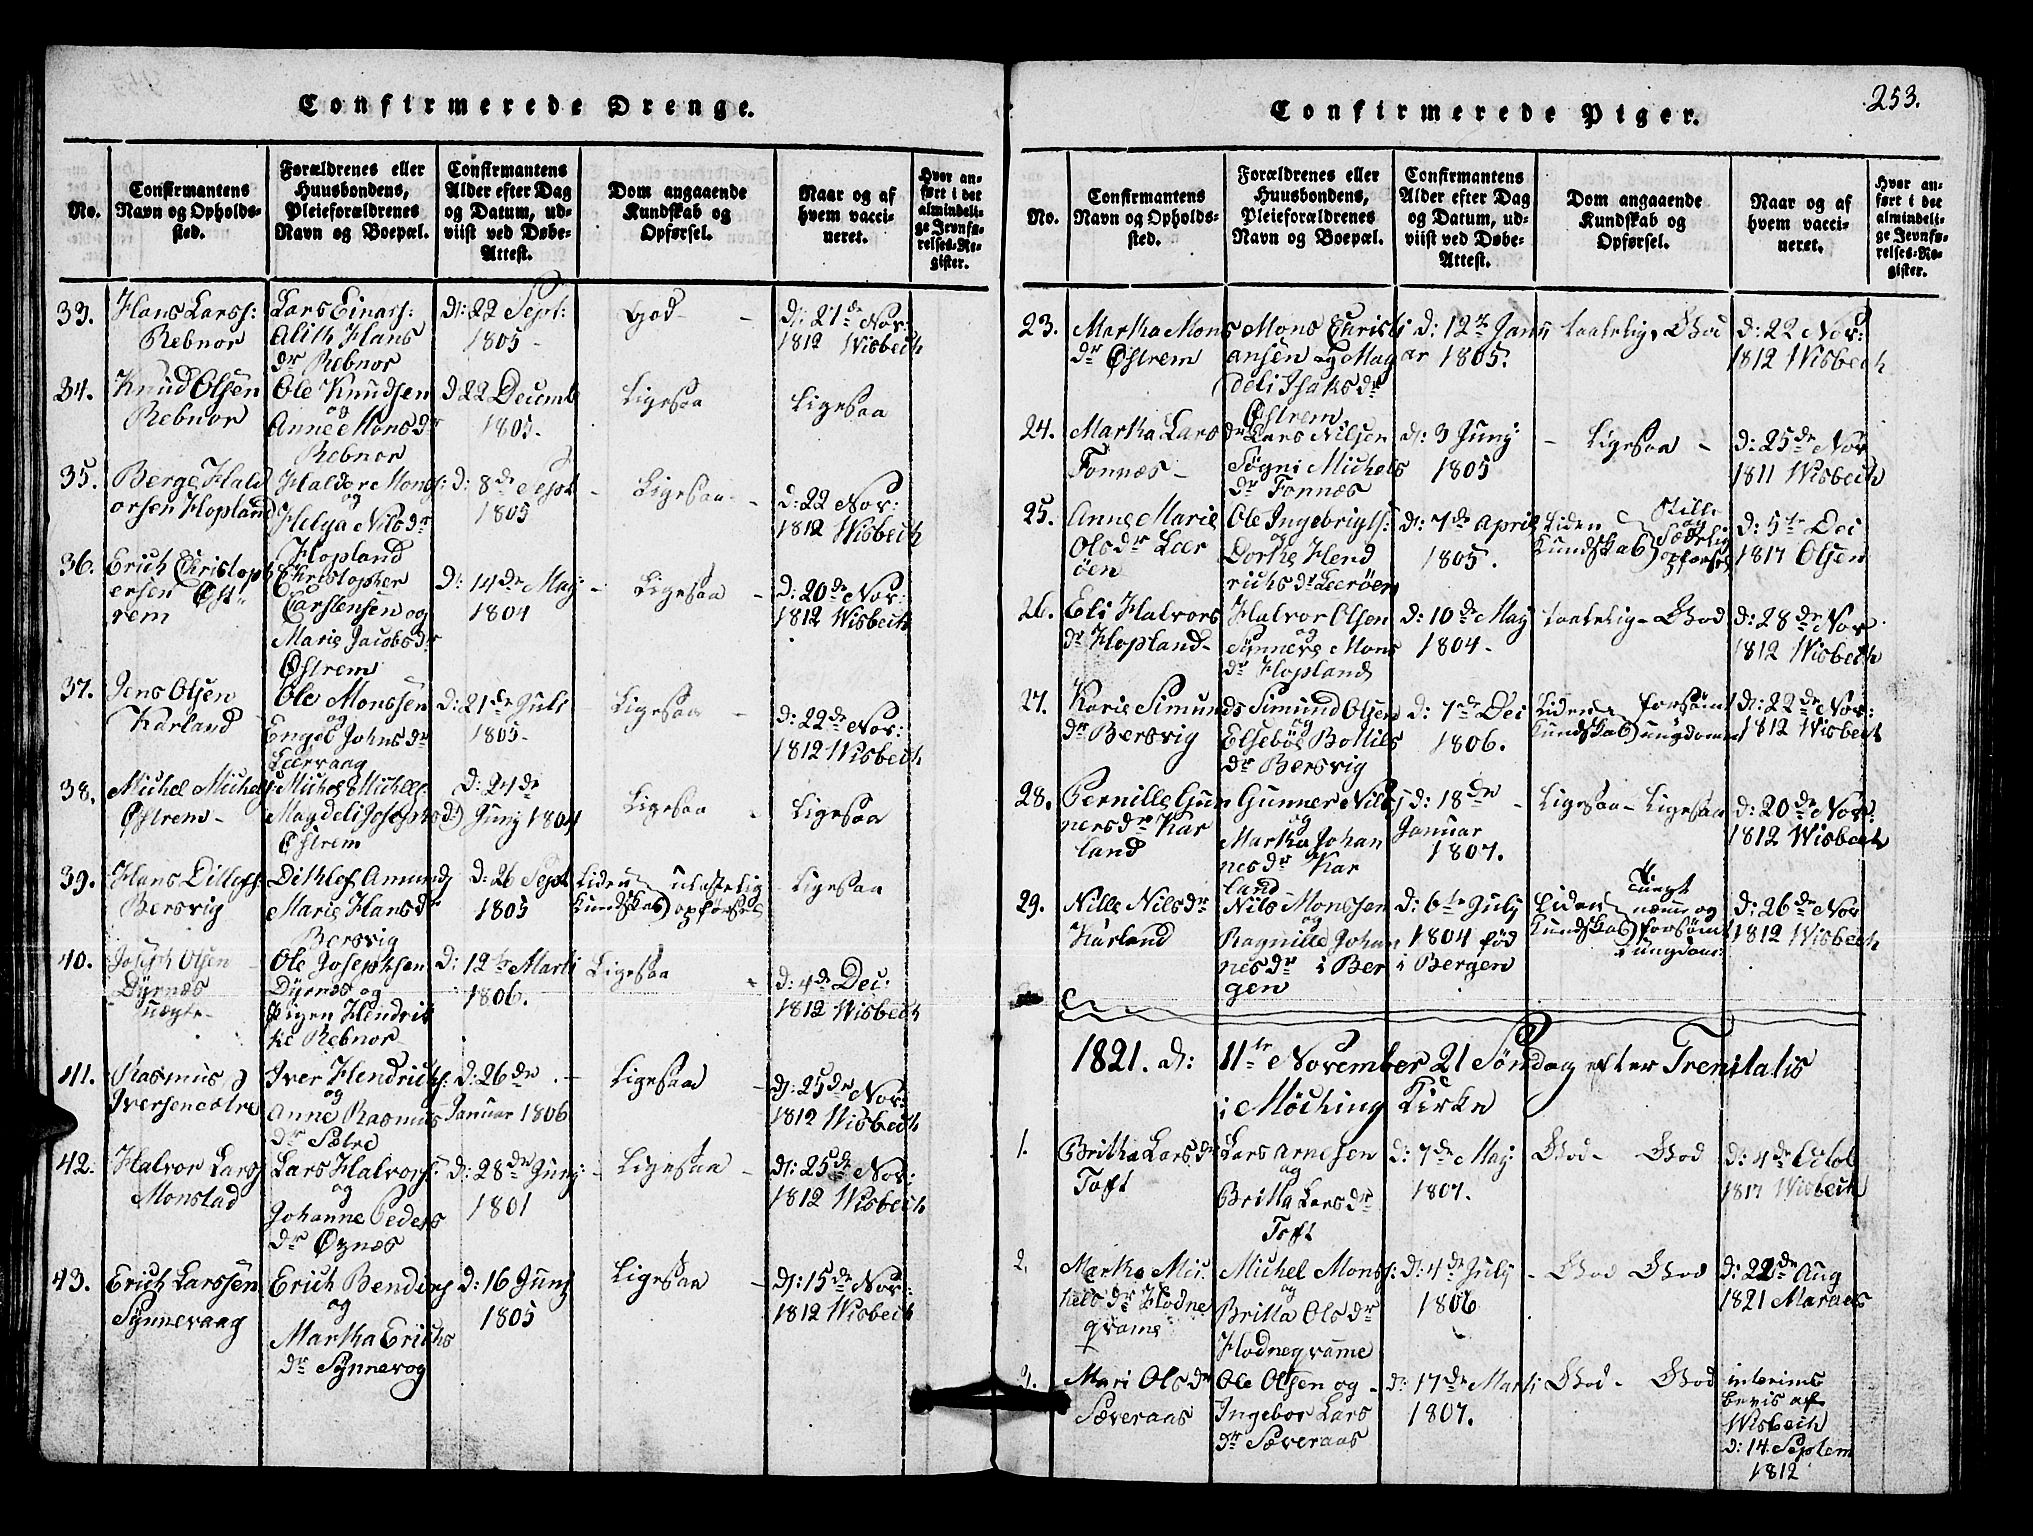 Confirmerede Drenge.
No.
Confirmantens
Navn og Opholds-
sted.
Forældrenes eller
Huusbondens,
Pleieforældrenes
Navn og Boepæl.
Confirmantens
Alder efter Dag
og Datum, ud-
viist ved Døbe-
Attest.
Dom angaaende
Kundskab og
Opførsel.
Naar og af
hvem vacci-
neret.
Hvor an-
ført i det
almindeli-
ge Jevnfø-
relses-Re-
gister.
33.
Hans Larss:
Rebnor
Lars Einarss:
Alith Hans
dr Rebnor
d: 22 Sept:
1805
God
d: 21de Nov:
1812 Wisbech
34.
Knud Olsen
Rebnor
Ole Knudsen
og
Anne Mons dr
Rebnor
d 22 Decemb
1805.
Ligesaa
Ligesaa
35.
Berge Hald
orsen Hopland
Haldor Monss:
og
Helga Nils dr
Hopland
d: 8de Sept
1805
Ligesaa
d: 22 Nov:
1812 Wisbech
36.
Erich Christoph
ersen Øst
rem
Christopher
Carstensen og
Marie Jacobs dr
Østrem
d: 14de May
1804
Ligesaa
d: 20de Nov:
1812 Wisbech
37.
Jens Olsen
Karland
Ole Monssen
og
Engel Johns dr
Leervaag
d: 21de Juli
1805.
Ligesaa
d: 22de Nov:
1812 Wisbech
38.
Michel Michels:
Østrem
Michel Michels:
Magdeli Josephs d:
Østrem
d: 24de
Juny 1804
Ligesaa
Ligesaa
39.
Hans Ditlefs:
Bersvig
Dithlef Amunds
Marie Hans dr
Bersvig
d: 26 Sept
1805
Liden
Kundskab
ulastelig
opførsel
Ligesaa
40.
Joseph Olsen
Dyrnæs
uægte
Ole Josephsen
Dyrnæs og
Pigen Hendrik
ke Rebnor
d: 12te Marti
1806.
Ligesaa
d: 4de Dec:
1812 Wisbech
41.
Rasmus
Iversen Sætre
Iver Hendrichs:
og
Anne Rasmus
dr Sætre
d: 26de
Januar 1806
Ligesaa
d: 25de Nov:
1812 Wisbech
42.
Halvor Larss
Monstad
Lars Halvors:
og
Johanne Peders
dr Øznæs
d: 28de Juny
1801
Ligesaa
d: 25de Nov:
1812 Wisbech
43.
Erich Larssen
Synnevaag
Erich Bendixs
og
Martha Erichs
dr Synnevog
d: 16 Juny
1805
Ligesaa
d: 15de Nov:
1812 Wisbech
253.
Confirmerede Piger.
No.
Confirmantens
Navn og Opholds-
sted.
Forældrenes eller
Huusbondens,
Pleieforældrenes
Navn og Boepæl.
Confirmantens
Alder efter Dag
og Datum, ud-
viist ved Døbe-
Attest.
Dom angaaende
Kundskab og
Opførsel.
Naar og af
hvem vacci-
neret.
Hvor an-
ført i det
almindeli-
ge Jevnfø-
relses-Re-
gister.
23.
Martha Mons
dr Østrem
Mons Christi
ansen og Mag
deli Isaks dr
Østrem
d: 12te Janu
ar 1805.
taalelig God
d: 22 Nov:
1812 Wisbech
24.
Martha Lars dr
Fonnæs
Lars Nilsen
Søgni Michels
dr Fonnæs
d: 3 Juny
1805
Ligesaa
d: 25de Nov
1811 Wisbech
25.
Anne Marie
Ols dr Leer
øen
Ole Ingebrigts:
og
Dorthe Hend
richs dr Leerøen
d: 7de April
1805.
Liden
Kundskab
Stille
og
Sædelig
opførsel
d: 5te Dec
1817 Olsen
26.
Eli Halvors
dr Hopland
Halvor Olsen
og
Synneve Mons
dr Hopland
d: 10de May
1804.
taalelig God
d: 28de Nov
1812 Wisbech
27.
Karie Simunds
dr Bersvig
Simund Olsen
og
Elsebøe Bottels
dr Bersvig
d: 7de Dec
1806.
Liden
Kundskab
forsømt
ungdommen
d: 22de Nov:
1812 Wisbech
28.
Pernille Gun
ners dr Kar
land
Gunner Nils
og
Martha Johan
nes dr Kar
land
d: 18de
Januar
1807.
Ligesaa Ligesaa
d: 20de Nov:
1812 Wisbech
29.
Nille Nils dr
Karland
Nils Monssen
og
Ragnille Johan
nes dr i Ber
gen
d: 6te July
1804 fød
i Bergen
Liden
Kundskab
tungt
nemme og
forsømt
ungdom
d: 26de Nov
1812 Wisbech
1821. d: 11te November 21 Søndag efter Trenitatis
i Møching Kirke
1.
Britha Lars dr
Toft
Lars Arnesen
og
Britta Lars dr
Toft
d: 7de May
1807.
God God
d: 4de Octob
1817 Wisbech
2.
Martha Mic
hels dr Hodne
qvame
Michel Monss:
og
Britta Ols dr
Hodneqvame
d: 4de July
1806
God God
d: 22de Aug
1821
3.
Mari Ols dr
Sæveraas
Ole Olsen og
Ingebor Lars
dr Sæveraas
d: 17de Marti
1807.
God God
interims
bevis af
Wisbech
d: 14 Septem
1812